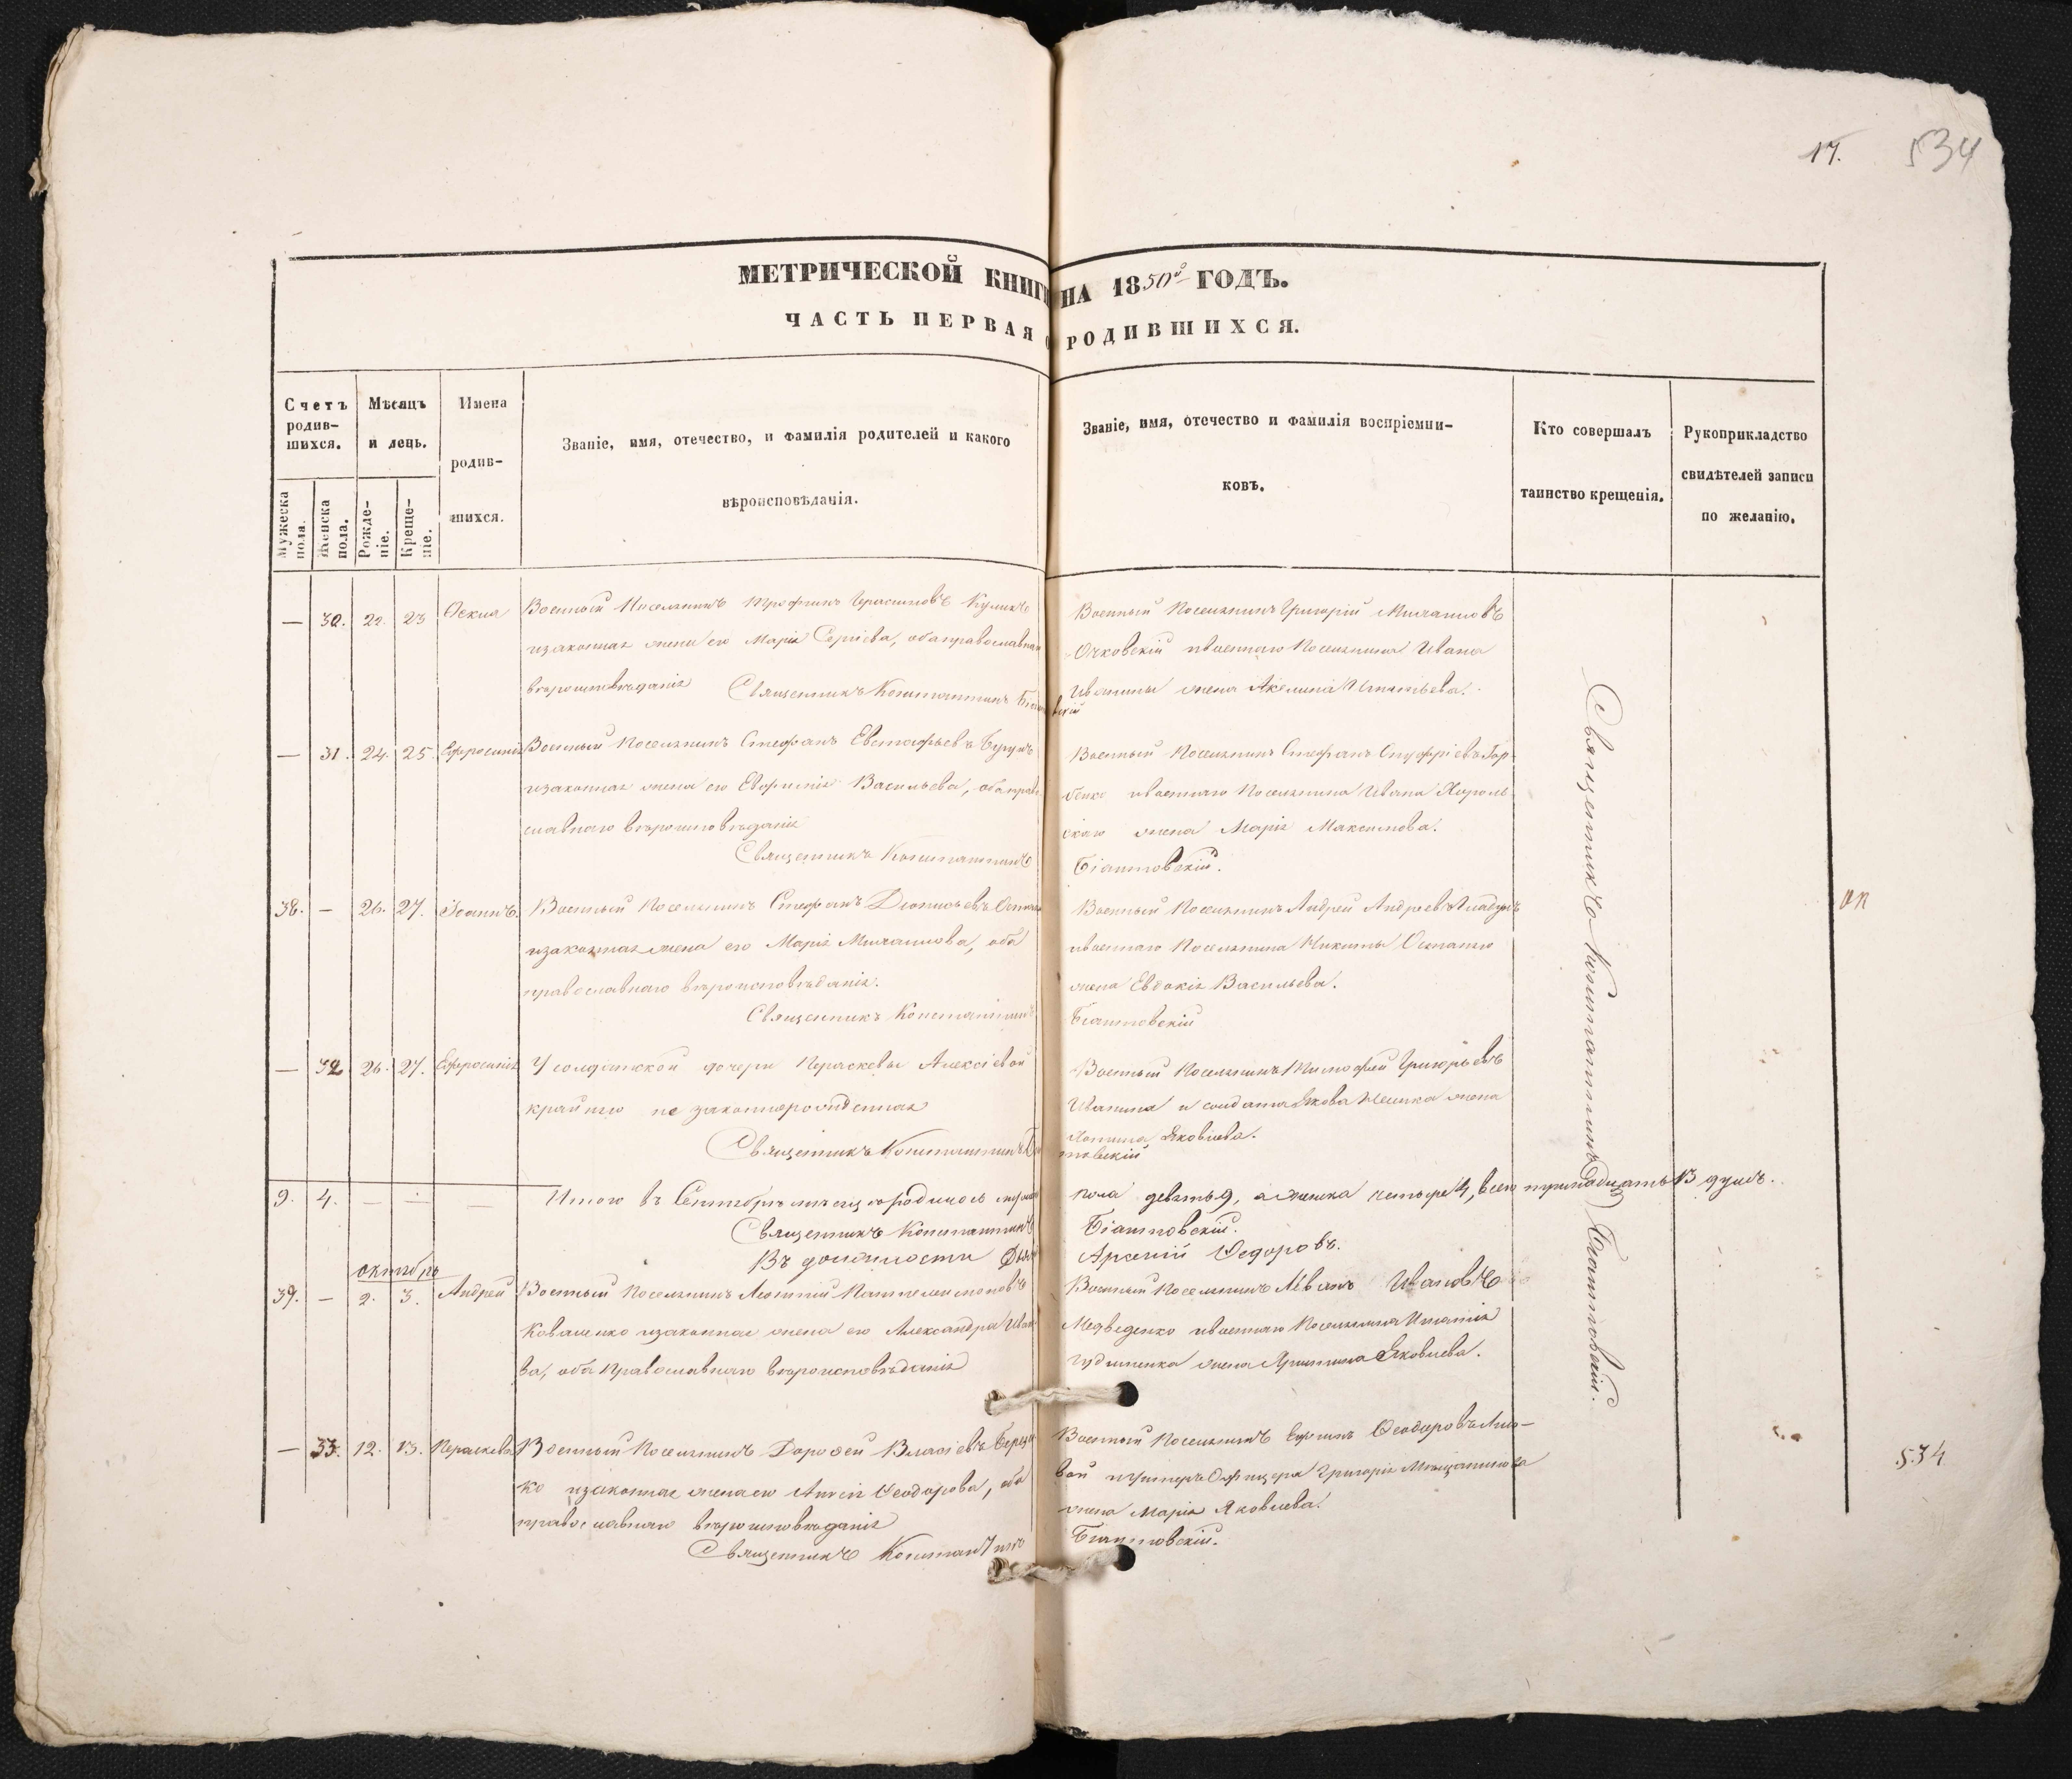 17. 534
МЕТРИЧЕСКОЙ КНИГИ НА 1850й ГОДЪ.
ЧАСТЬ ПЕРВАЯ О РОДИВШИХСЯ.
Счетъ родив-
шихся.
Мужеска пола.
Женска пола.
Мѣсяцъ
и день.
Рожде-
ніе.
Креще-
ніе.
Имена
родив-
шихся.
Званіе, имя, отечество, и фамилія родителей и какого
вѣроисповѣданія.
Званіе, имя, отечество и фамилія воспріемни-
ковъ.
Кто совершалъ
таинство крещенія.
Рукоприкладство
свидѣтелей записи
по желанію.
— 30. 22. 23 Ѳекла Военный Поселянинъ Трофимъ Герасимовъ Куликъ
изаконная жена его Марія Сергіева, оба православнаго
вѣроисповѣданія Священникъ Константинъ
Военный Поселянинъ Григорій Михаиловъ
Очковскій ивоеннаго Поселянина Ивана
Иванины жена Акелина Игнатьева.
— 31. 24. 25. Ефросинія Военный Поселянинъ Стефанъ Евстафьевъ
изаконная жена его Евфимія Васильева, оба право
славнаго вѣроисповѣданія
Священникъ Константинъ
Военный Поселянинъ Стефанъ Онуфріевъ Гор-
бенко ивоеннаго Поселянина Ивана Хороль
скаго жена Марія Максимова.
Біантовскій.
38. — 26. 27. Іоаннъ. Военный Поселянинъ Стефанъ Діонисьевъ
изаконная жена его Марія Михаилова, оба
православнаго вѣроисповѣданія.
Священникъ Константинъ
Военный Поселянинъ Андрей Андреевъ
ивоеннаго Поселянина Никиты
жена Евдокія Васильева.
Біантовскій
ап
— 32. 26. 27. Ефросинія У солдатской дочери Параскевы Алексіевой
крайнего не законнорожденная
Священникъ Константинъ Біантовскій
Военный Поселянинъ Тимофей Григорьевъ
Иванина и солдата Якова жена
Яковлева.
9. 4. — — — Итого въ Сентябрѣ мѣсяцѣ родилось мужеска пола девять 9, а женска четыре 4, всего тринадцать 13 душъ.
Священникъ Константинъ Біантовскій.
Въ должности Арсеній Ѳедоровъ.
октябрь
39. — 2. 3. Андрей Военный Поселянинъ Пантелеимоновъ
Коваленко изаконная жена его Александра Ивано
ва, оба Православнаго вѣроисповѣданія
Военный Поселянинъ Иванъ Ивановъ
Медведенко ивоеннаго Поселянина Игнатія
жена Яковлева.
— 33. 12. 13. Параскева Военный Поселянинъ Дорофей Власіевъ
ко изаконная жена его Ѳеодорова, оба
православнаго вѣроисповѣданія
Священникъ Константинъ
Военный Поселянинъ Ефимъ Ѳеодоровъ
вой иунтеръ Офицера Григорія Мещанинова
жена Марія Яковлева.
Біантовскій.
Священникъ Константинъ Біантовскій.
534